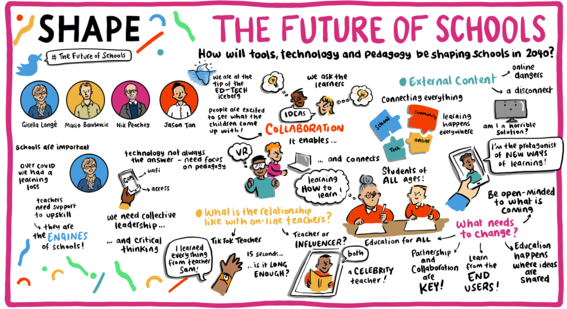 SHAPE
# The Future of Schools
THE FUTURE OF SCHOOLS
How will tools, technology and pedagogy be shaping schools in 2040?
Gisella Langé
Nik Peachey
Jason Tan
Schools are important
over COVID
we had a
learning
loss
teachers
need support
to upskill
they are
the ENGINES
of schools!
technology not always
the answer - need focus
on pedagogy
wifi
access
we need collective
leadership...
... and critical
thinking
We are at the
tip of the
ED-TECH
iceberg
people are excited
to see what the
children come
up with!
we ask the
learners
IDEAS
COLLABORATION
It enables...
VR
... and connects
learning
HOW to
learn!
External Content
online
dangers
a disconnect
Connecting everything
School
Community
Tech
online
learning
happens
everywhere
am I a horrible
solution?
I'm the protagonist
of NEW WAYS
of learning!
Students of
ALL ages!
Education for ALL
Be open-minded
to what is
coming
What is the relationship
like with on-line teachers?
TikTok Teacher
I learned
everything
from teacher
Sam!
15 seconds...
... is it LONG
ENOUGH?
Teacher or
INFLUENCER?
both
a CELEBRITY
teacher!
What needs
to change?
Partnership
and
Collaboration
are
KEY!
Learn
from the
END
USERS!
Education
happens
where ideas
are
shared